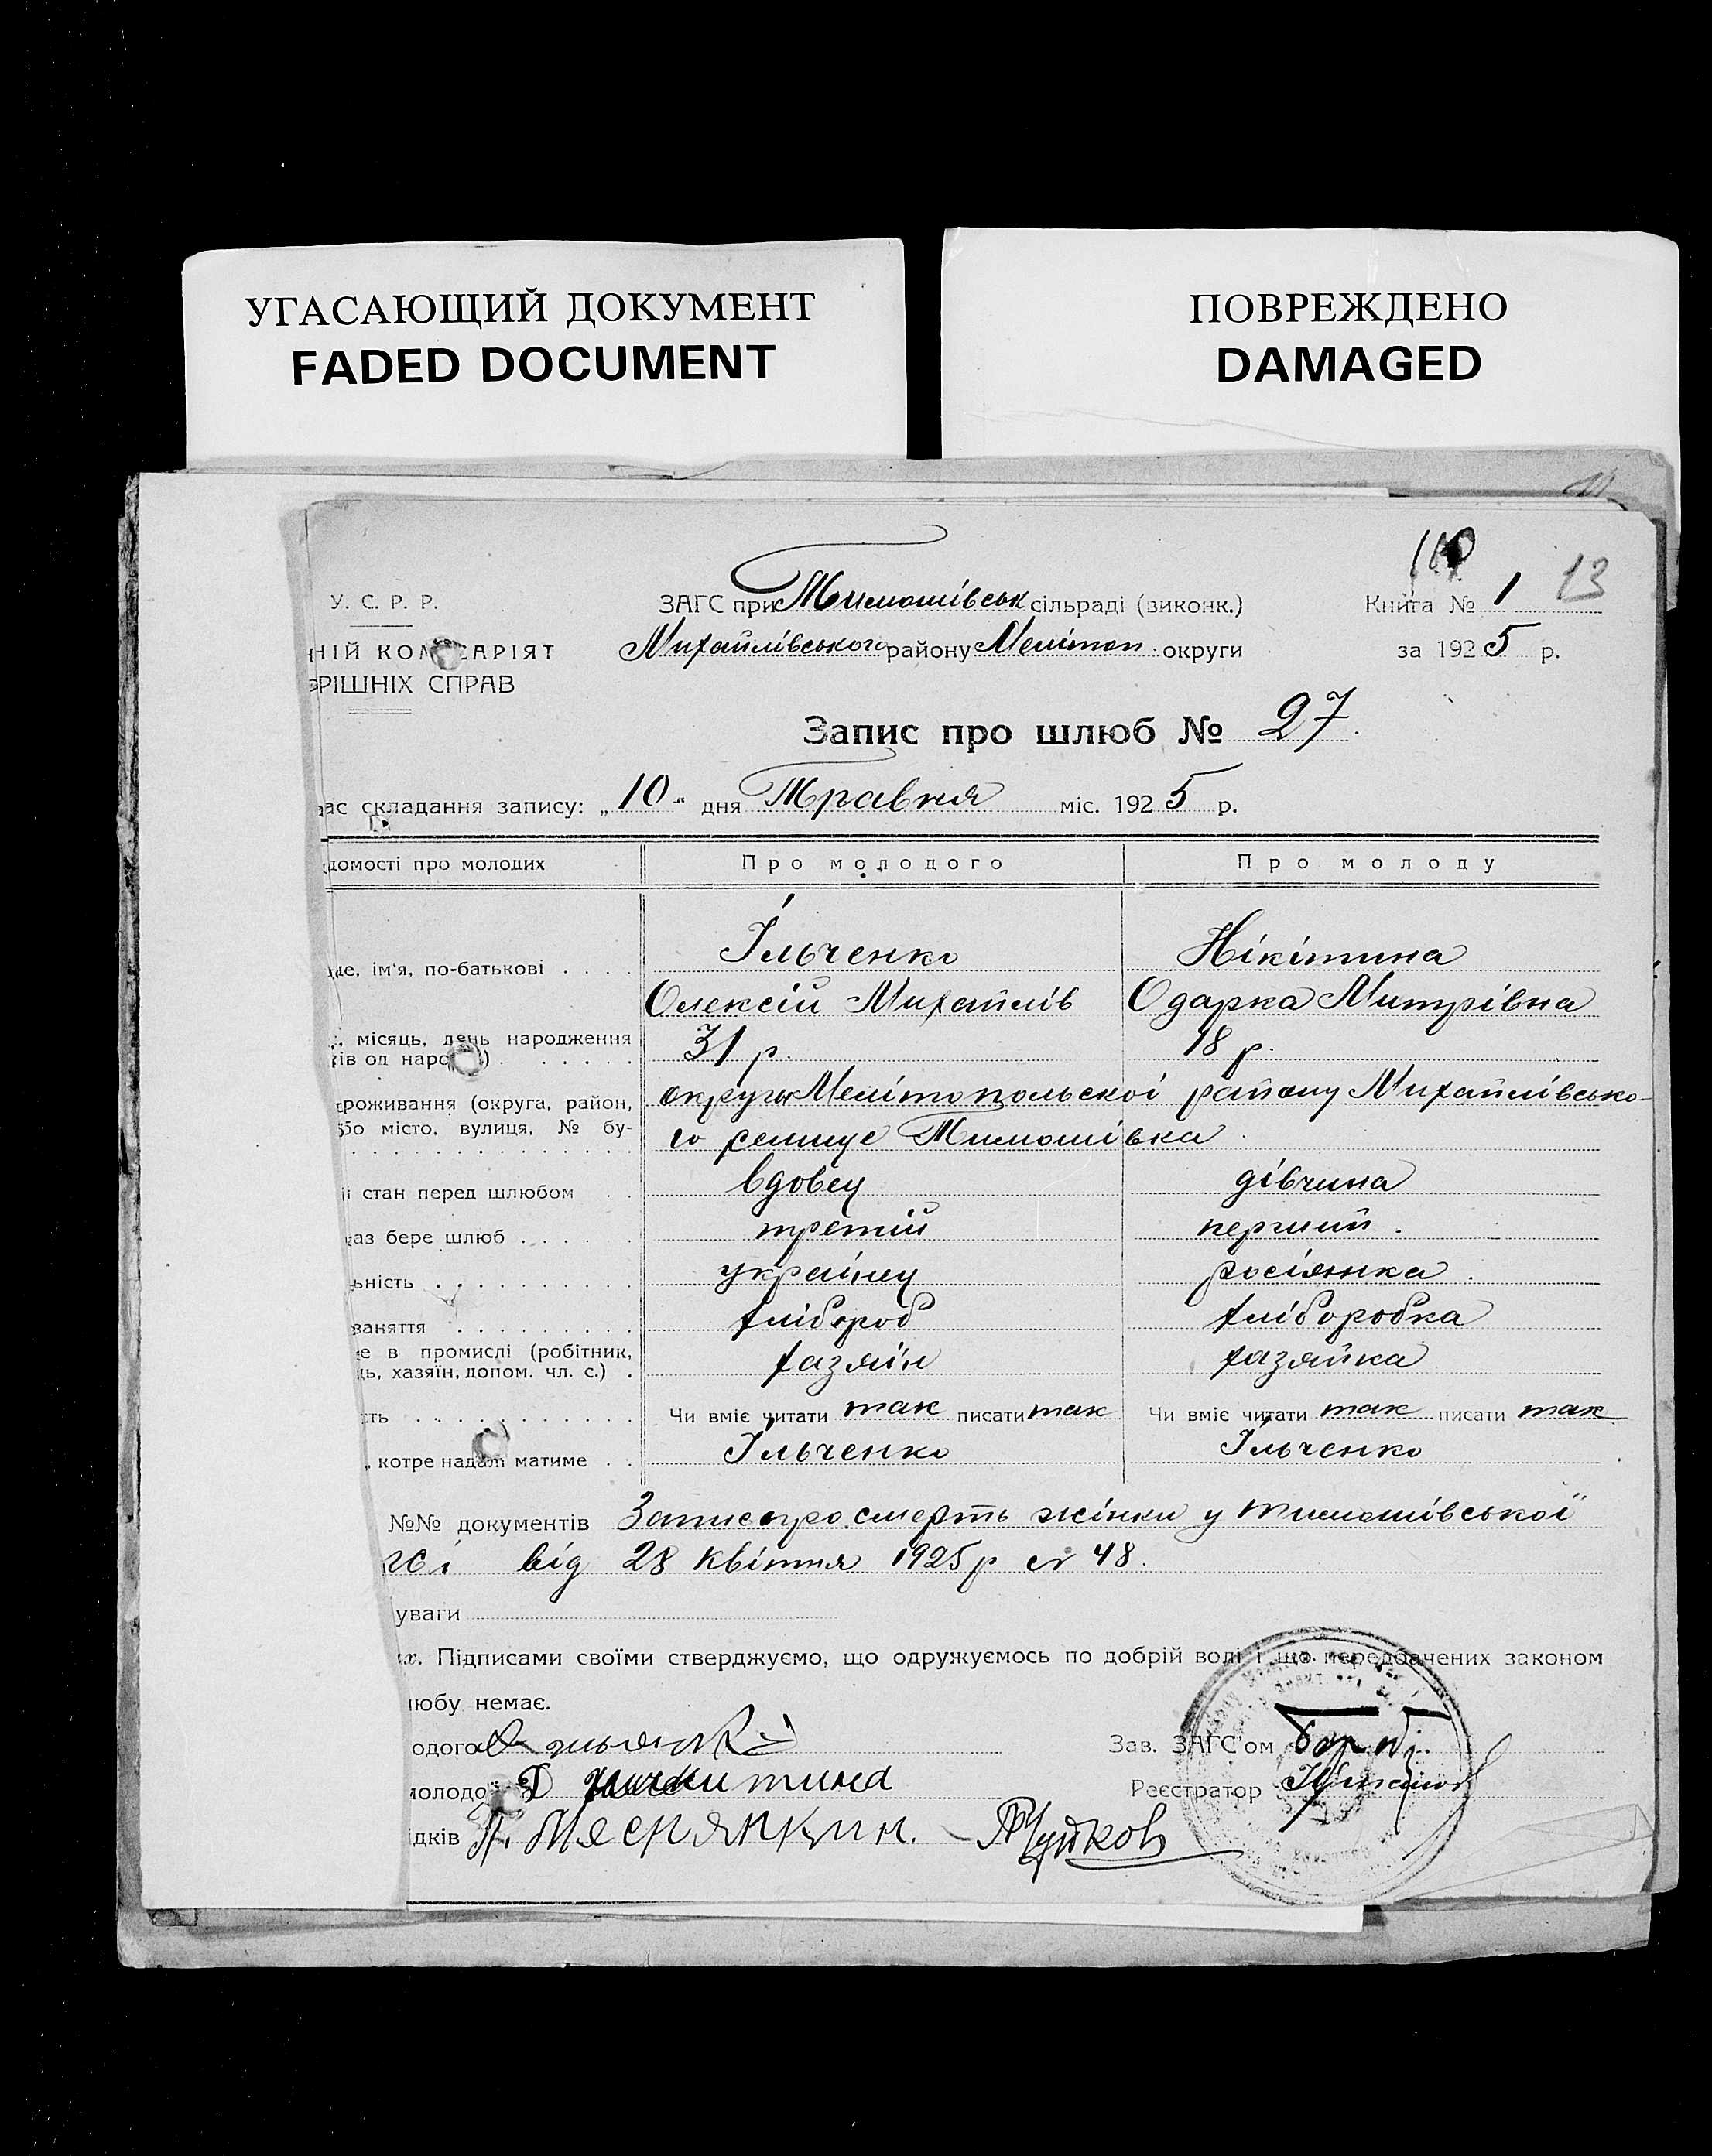 УГАСАЮЩИЙ ДОКУМЕНТ
FADED DOCUMENT
ПОВРЕЖДЕНО
DAMAGED
13
У. С. Р. Р.
НІЙ КОМІСАРІЯТ
РІШНІХ СПРАВ
ЗАГС при Тимошівськ сільраді (виконк.)
Михайлівського району Меліто́п. округи
Книга № 1
за 1925 р.
Запис про шлюб № 27
час складання запису: „10“ дня Травня міс. 1925 р.
домості про молодих Про молодого Про молоду
ще, ім'я, по-батькові . . . . Ільченко Нікітина
Олексій Михайлів Одарка Митрівна
місяць, день народження
ків од народ.) . . . . . 31 р. 18 р.
роживання (округа, район, округи Мелітопольскоі району Михайлівсько-
бо місто, вулиця, № бу- го селище Тимошівка
і стан перед шлюбом . . вдовец дівчина
раз бере шлюб . . . . . третій перший .
ьність . . . . . . . . . украінец росіянка .
заняття . . . . . . . . . хлібороб хліборобка
е в промислі (робітник,
ць, хазяїн, допом. чл. с.) . хазяїн хазяйка
сть . . . . . . . . . . . Чи вміє читати так писати так Чи вміє читати так писати так
, котре надалі матиме . . Ільченко Ільченко
№№ документів Запис про смерть жінки у тимошівської
від 28 квітня 1925 р № 48.
уваги
их. Підписами своїми стверджуємо, що одружуємось по добрій волі і що передбачених законом
любу немає.
одого
молодо Д никитина
Зав. ЗАГС'ом
Реєстратор
дків